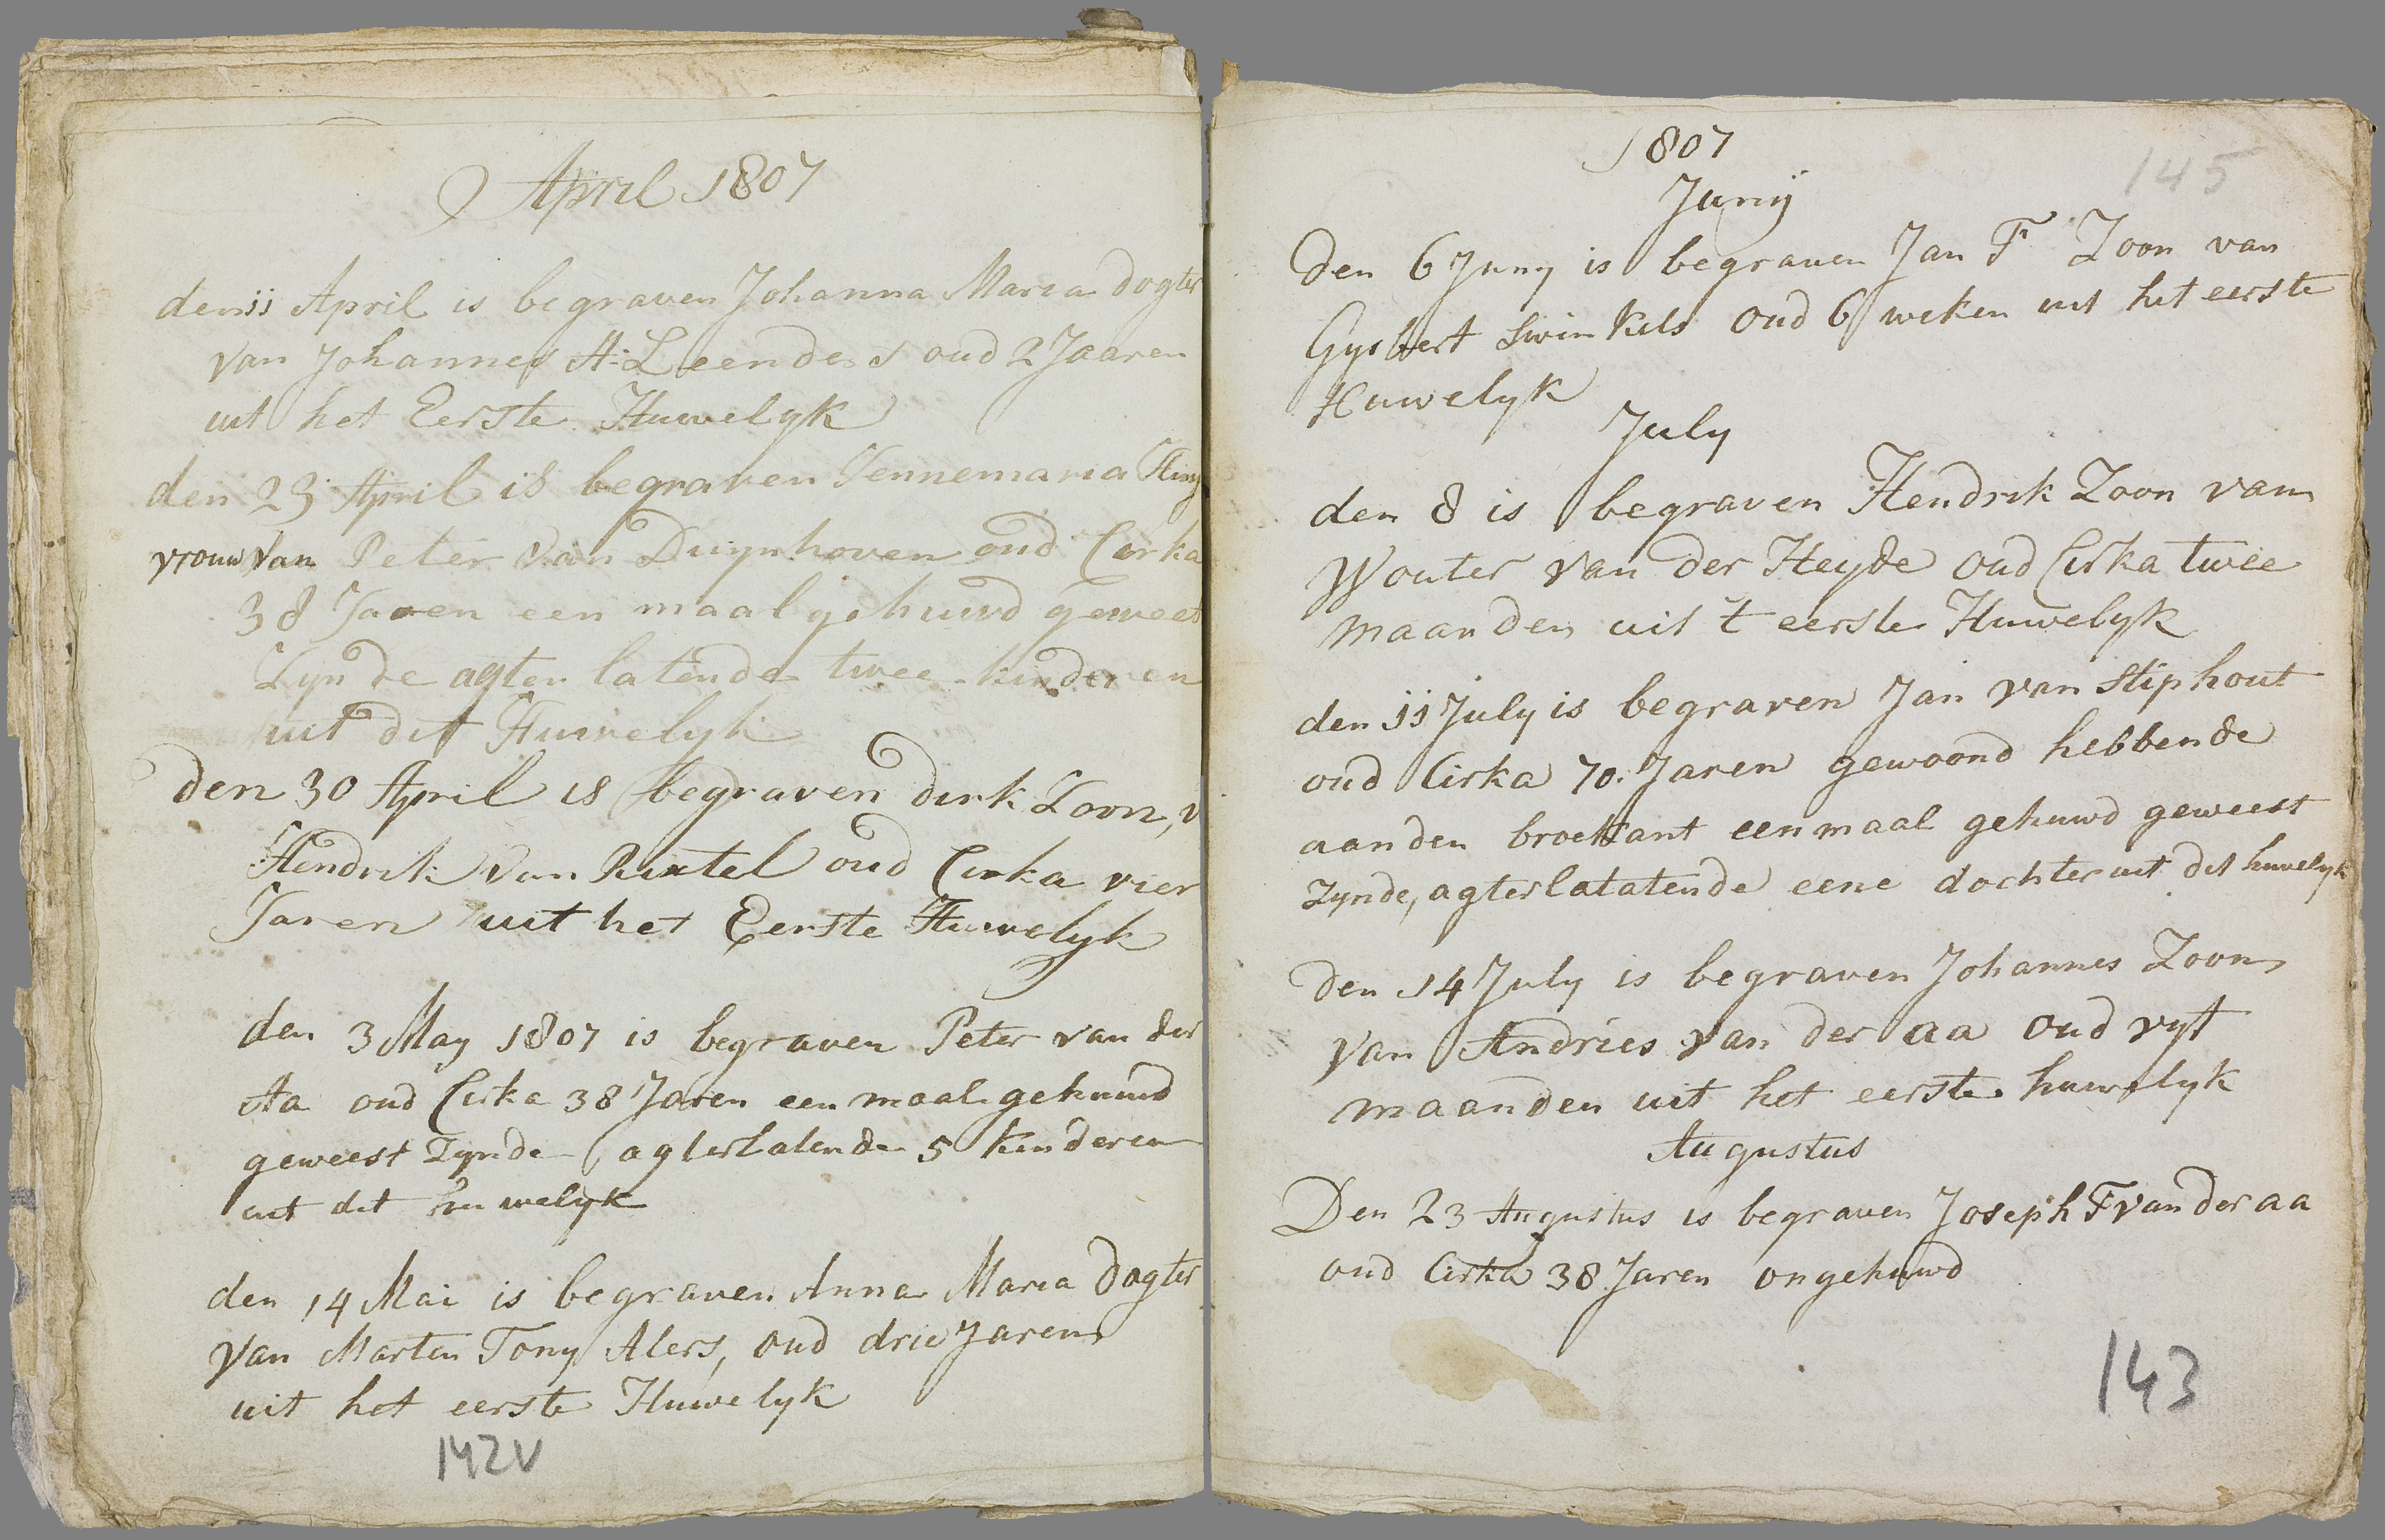 April 1807
den 11 April is begraven Johanna Maria dogter
van Johannes A: Leenders oud 2 Jaaren
uit het Eerste Huwelyk
den 23 April is begraven Jennemaria
vrouw van Peter van Duynhoven oud Cirka
38 Jaren een maal gehuwd geweest
Zynde agter latende twee kinderen
uit dit Huwelyk
den 30 April is begraven dirk Zoon, v
Hendrik van Rixtel oud Cirka vier
Jaren uit het Eerste Huwelyk
den 3 May 1807 is begraven Peter van der
Aa oud Cirka 38 Jaren een maal gehuwd
geweest Zynde agterlatende 5 kinderen
uit dit huwelyk
den 14 Mai is begraven Anna Maria Dogter
van Marten Tony Alers, oud drie Jaren
uit het eerste Huwelyk
142V
1807
145
Junij
den 6 Juny is begraven Jan F Zoon van
Gysbert Swinkels oud 6 weken uit het eerste
Huwelyk
July
den 8 is begraven Hendrik Zoon van
Wouter van der Heyde oud Cirka twee
maanden uit t eerste Huwelyk
den 11 July is begraven Jan van Stiphout
oud Cirka 70. Jaren gewoond hebbende
aan den broekkant eenmaal gehuwd geweest
zynde, agterlatatende eene dochter uit dit huwelyk
den 14 July is begraven Johannes Zoon
van Andries van der aa oud vyf
maanden uit het eerste huwelyk
Augustus
Den 23 Augustus is begraven Joseph F van der aa
oud Cirka 38 Jaren ongehuwd
143